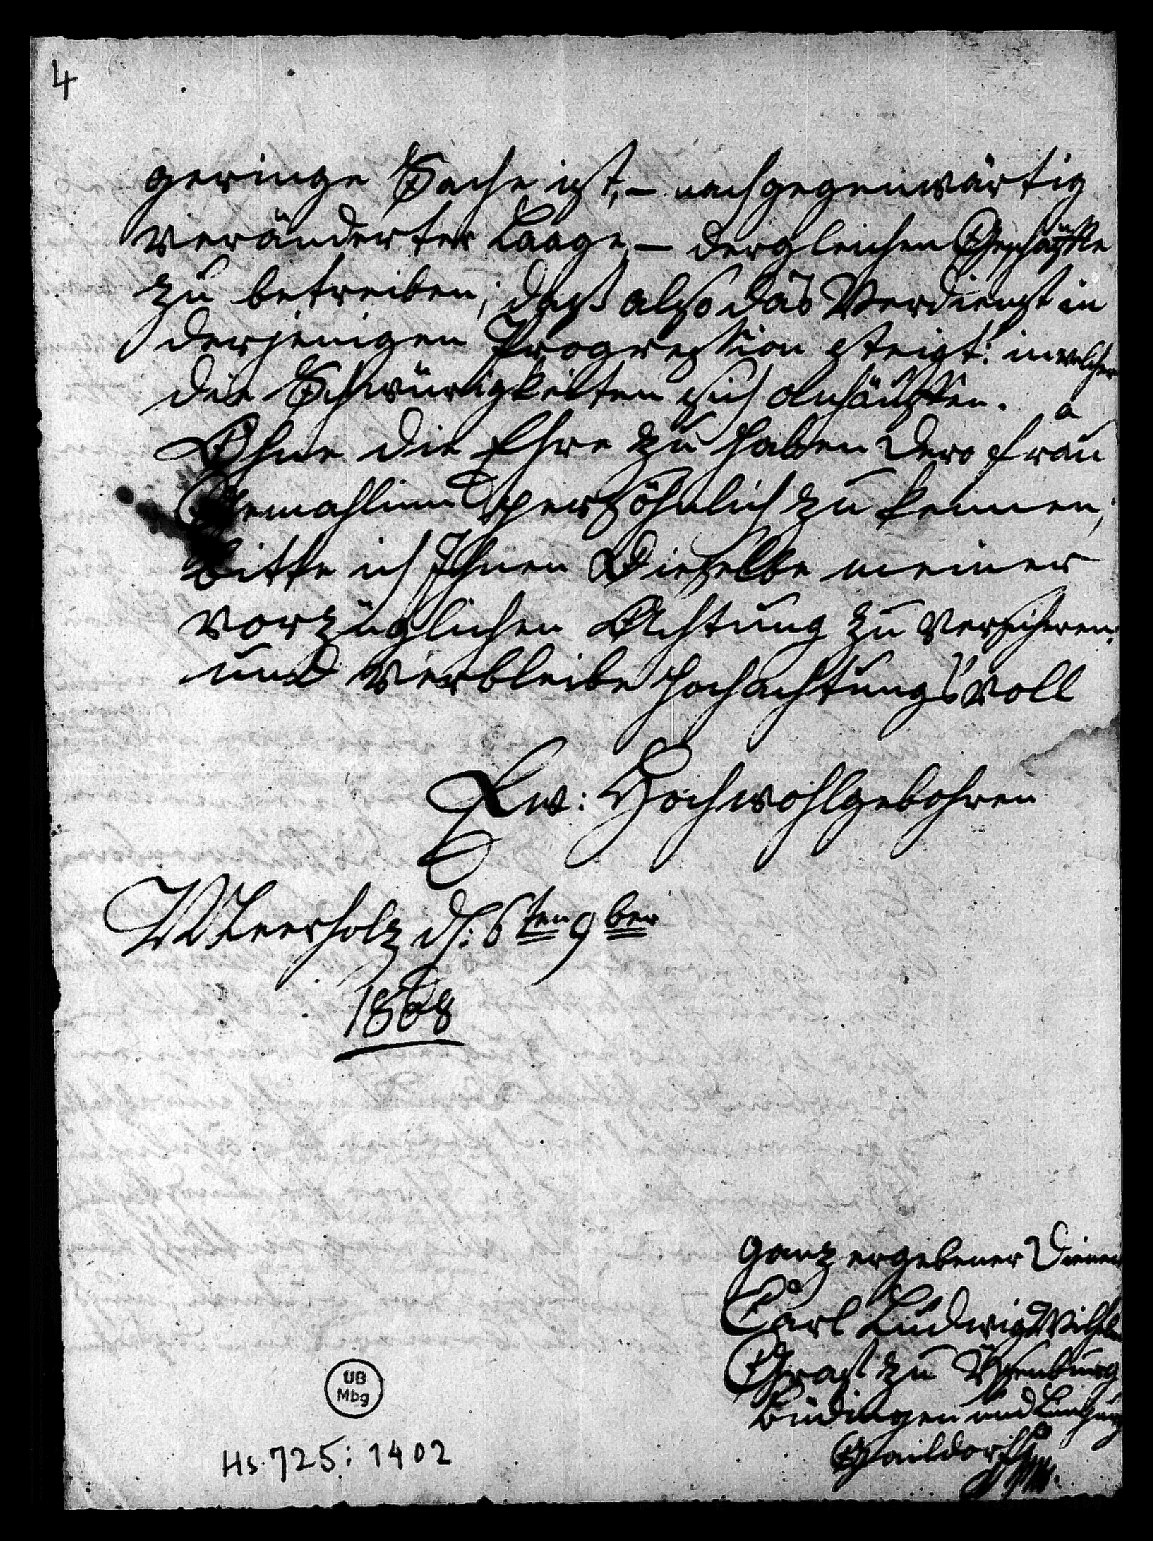 4
geringe Sache ist, – nach gegenwärtig
veränderter Laage, – dergleichen Geschäffte
zu betreiben; daß also das Verdienst in
derjenigen Progression steigt: in welcher
die Schwürigkeiten sich anhäufften.
Ohne die Ehre zu haben Dero Frau
Gemahlinn persöhnlich zu kennen;
bitte ich Ihnen Dieselbe meiner
vorzüglichen Achtung zu versicheren
und verbleibe hochachtungsvoll
Ew: Hochwohlgebohren
Meerholz d: 6ten 9ber
1808
ganz ergebener Diener
Carl Ludwig Wilhelm
Graf zu Ysenburg
Büdingen und Limpurg
Gaildorff
UB
Mbg
Hs. 725: 1402